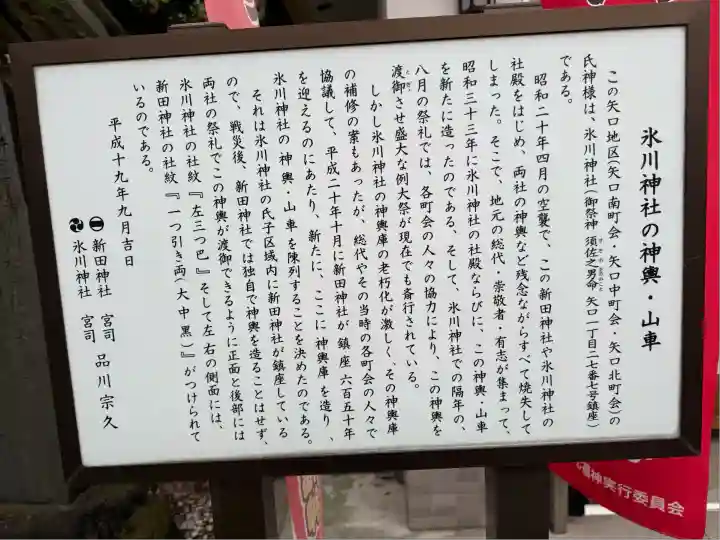 氷川神社の神輿・山車
この矢口地区(矢口南町会・矢口中町会・矢口北町会)の
氏神様は、氷川神社(御祭神 須佐之男命 矢口一丁目二七番七号鎮座)
である。
昭和二十年四月の空襲で、この新田神社や氷川神社の
社殿をはじめ、両社の神輿など残念ながらすべて焼失して
しまった。そこで、地元の総代・崇敬者・有志が集まって、
昭和三十三年に氷川神社の社殿ならびに、この神輿・山車
を新たに造ったのである、そして、氷川神社での隔年の、
八月の祭礼では、各町会の人々の協力により、この神輿を
渡御させ盛大な例大祭が現在でも斎行されている。
しかし氷川神社の神輿庫の老朽化が激しく、その神輿庫
の補修の案もあったが、総代やその当時の各町会の人々で
協議して、平成二十年十月に新田神社が鎮座六百五十年
を迎えるのにあたり、新たに、ここに神輿庫を造り、
氷川神社の神輿・山車を陳列することを決めたのである。
それは氷川神社の氏子区域内に新田神社が鎮座している
ので、戦災後、新田神社では独自で神輿を造ることはせず、
両社の祭礼でこの神輿が渡御できるように正面と後部には
氷川神社の社紋『左三つ巴』そして左右の側面には、
新田神社の社紋『一つ引き両(大中黒)』がつけられて
いるのである。
平成十九年九月吉日
新田神社 宮司 品川宗久
氷川神社 宮司
福神実行委員会